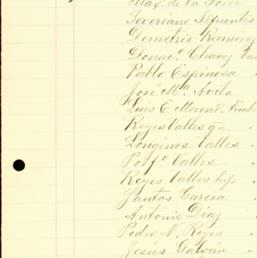 Max. de la Torre
Severiano Sifuentes
Demetrio Ramirez
Donac.º Chavez
Pablo Espinosa
José Mª Avila
Luis E. Moreno
Reyes Valles
Longinos Valles
Porfº Valles
Reyes Valles hijo
Santos Garcia
Antonio Diaz
Pedro N. Reyes
Jesús Galván